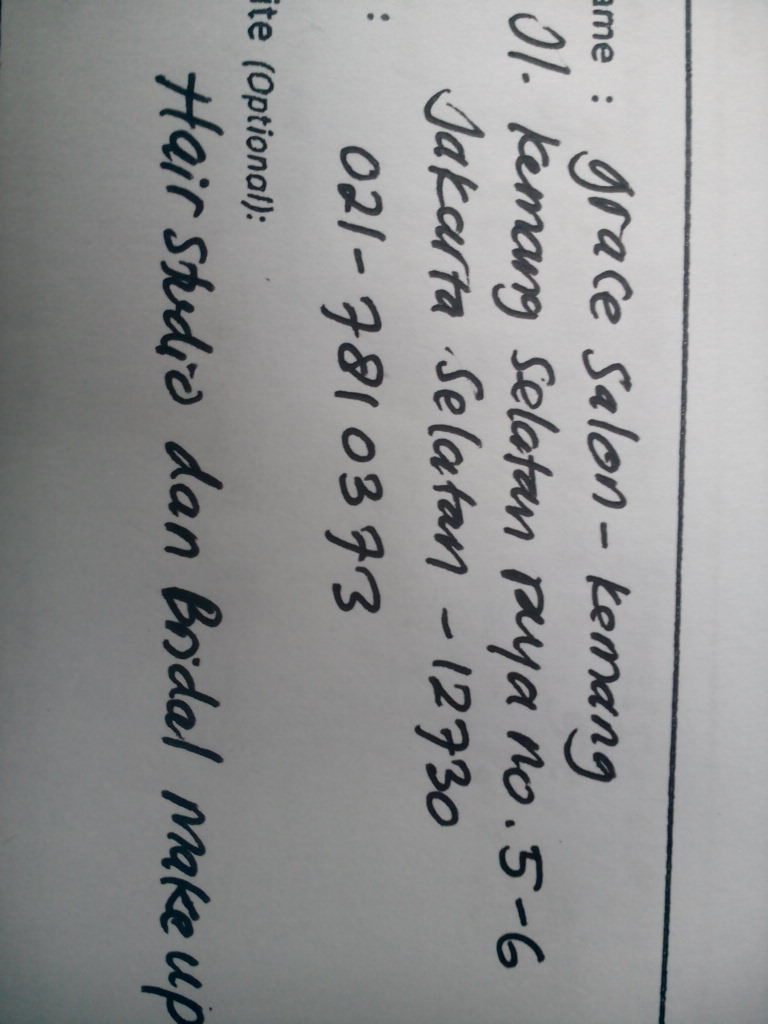 ame : grace Salon - Kemang
Jl. Kemang Selatan raya no. 5-6
Jakarta Selatan - 12730
: 021 - 7810373
ite (Optional):
Hair Studio dan Bridal Make up